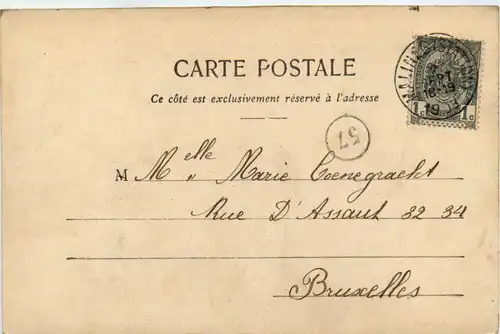 CARTE POSTALE
Ce côté est exclusivement réservé à l'adresse
57
1c 1c
16-19
M Melle Marie Coenegracht
Rue D'Assaut 32 34
Bruxelles